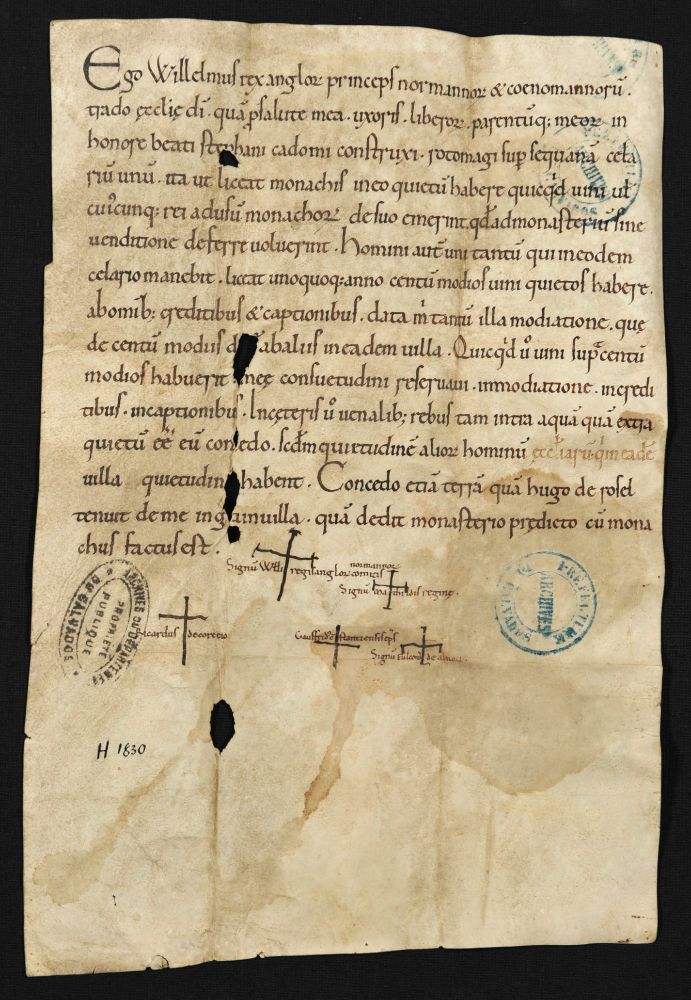 Ego Willelmus rex anglor princeps normannor & coenomannorū.
trado ęcclę dī. quā psalute mea. uxoris. liberor. parentūq; meor. in
honore beati stephani cadomi construxi. rotomagi sup sequanā cela
riū unū. ita ut liceat monachis in eo quietū habere quicqd uini uł
cuiuscunq; rei ad usū monachor de suo emerint. qd ad monasteriū siue
uenditione deferre uoluerint. Homini autē uni tantū qui in eodem
celario manebit. liceat unoquoq; anno centū modios uini quietos habere.
ab omib; creditibus & captionibus. data m̄ tantū illa modiatione. quę
de centū modiis d abalus in eadem uilla. Quicqd ů uini supra centū
modios habuerit męę consuetudini reseruaui. in modiatione. in credi
tibus. in captionibus. In cęteris ů uenalib; rebus tam intra aquā quā extra
quietū eē eū concedo. scdm quietudinē alior hominū ęccliarū. q in eadē
uilla quietudinē habent. Concedo etiā terrā quā hugo de rosel
tenuit de me in grainuilla. quā dedit monasterio prędicto cū mona
chus factus est.
Signū Willi regis anglor normannor comitis
Signū mathildis reginę.
Ricardus decoreio
Gauffridi stantiensis epi
Signū fulconi de alnou.
ARCHIVES DU DÉPARTEMENT DU CALVADOS
PROPRIÉTÉ PUBLIQUE
PREFECTURE DU CALVADOS
ARCHIVES
H 1830